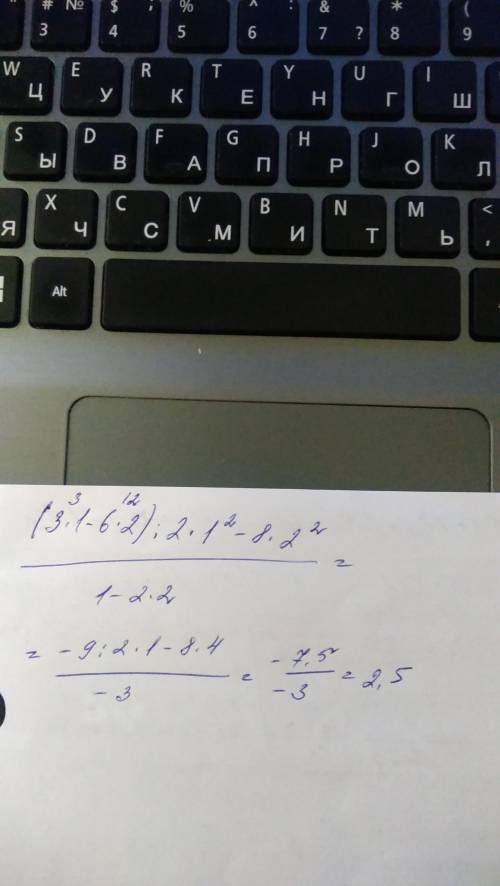 # № $ ; % ^ : & * (
3 4 5 6 7 ? 8 9
W Ц E У R К T Е Y Н U Г I Ш
S Ы D В F А G П H Р J О K Л
Я X Ч C С V М B И N Т M Ь < ,
Alt
3 12
(3·1-6·2):2·1²-8·2²
=
1-2·2
= -9:2·1-8·4 = -7,5 = 2,5
-3 -3